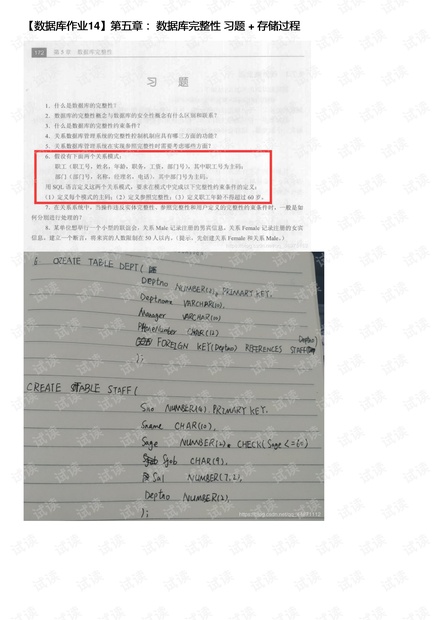 【数据库作业14】第五章： 数据库完整性 习题 + 存储过程
172 第5章 数据库完整性
习 题
1. 什么是数据库的完整性？
2. 数据库的完整性概念与数据库的安全性概念有什么区别和联系？
3. 什么是数据库的完整性约束条件？
4. 关系数据库管理系统的完整性控制机制应具有哪三方面的功能？
5. 关系数据库管理系统在实现参照完整性时需要考虑哪些方面？
6. 假设有下面两个关系模式：
职工（职工号，姓名，年龄，职务，工资，部门号），其中职工号为主码；
部门（部门号，名称，经理名，电话），其中部门号为主码。
用 SQL 语言定义这两个关系模式，要求在模式中完成以下完整性约束条件的定义：
（1）定义每个模式的主码；（2）定义参照完整性；（3）定义职工年龄不得超过 60 岁。
7. 在关系系统中，当操作违反实体完整性、参照完整性和用户定义的完整性约束条件时，一般是如
何分别进行处理的？
8. 某单位想举行一个小型的联谊会，关系 Male 记录注册的男宾信息，关系 Female 记录注册的女宾
信息。建立一个断言，将来宾的人数限制在 50 人以内。（提示，先创建关系 Female 和关系 Male。）
6 CREATE TABLE DEPT(
Deptno NUMBER(2), PRIMARY KEY,
Deptname VARCHAR(10),
Manager VARCHAR(10)
PhoneNumber CHAR(12)
FOREIGN KEY(Deptno) REFERENCES STAFF(Deptno)
);
CREATE TABLE STAFF(
Sno NUMBER(4) PRIMARY KEY,
Sname CHAR(10),
Sage NUMBER(2), CHECK(Sage <=60)
Sjob CHAR(9),
Sal NUMBER(7,2),
Deptno NUMBER(2),
);